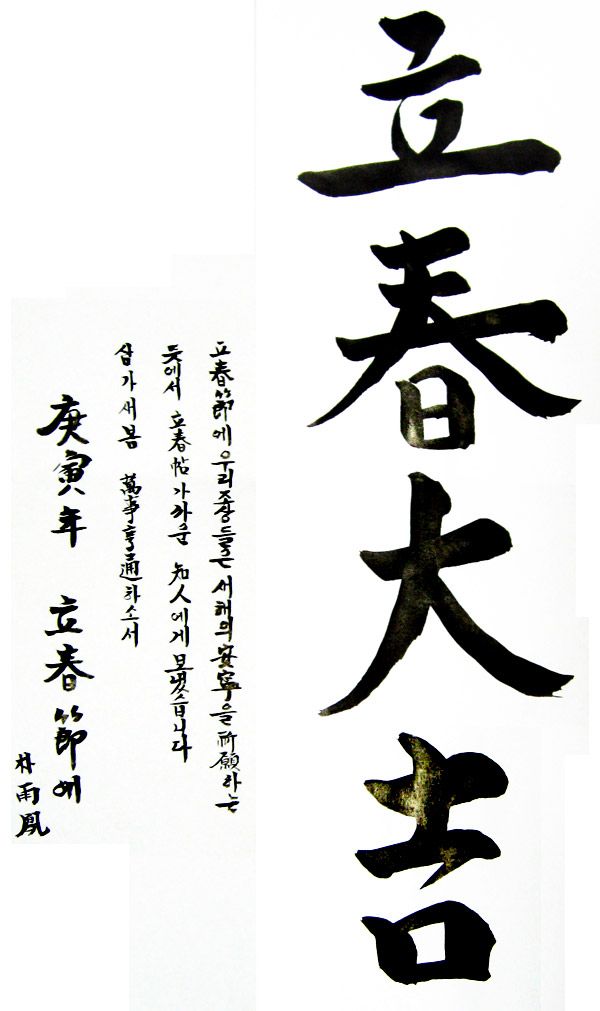 立春大吉
立春節에 우리 조상들은 새해의 安寧을 祈願하는
뜻에서 立春帖 가까운 知人에게 보냈습니다
삼가 새봄 萬事亨通하소서
庚寅年 立春節에
朴雨鳳